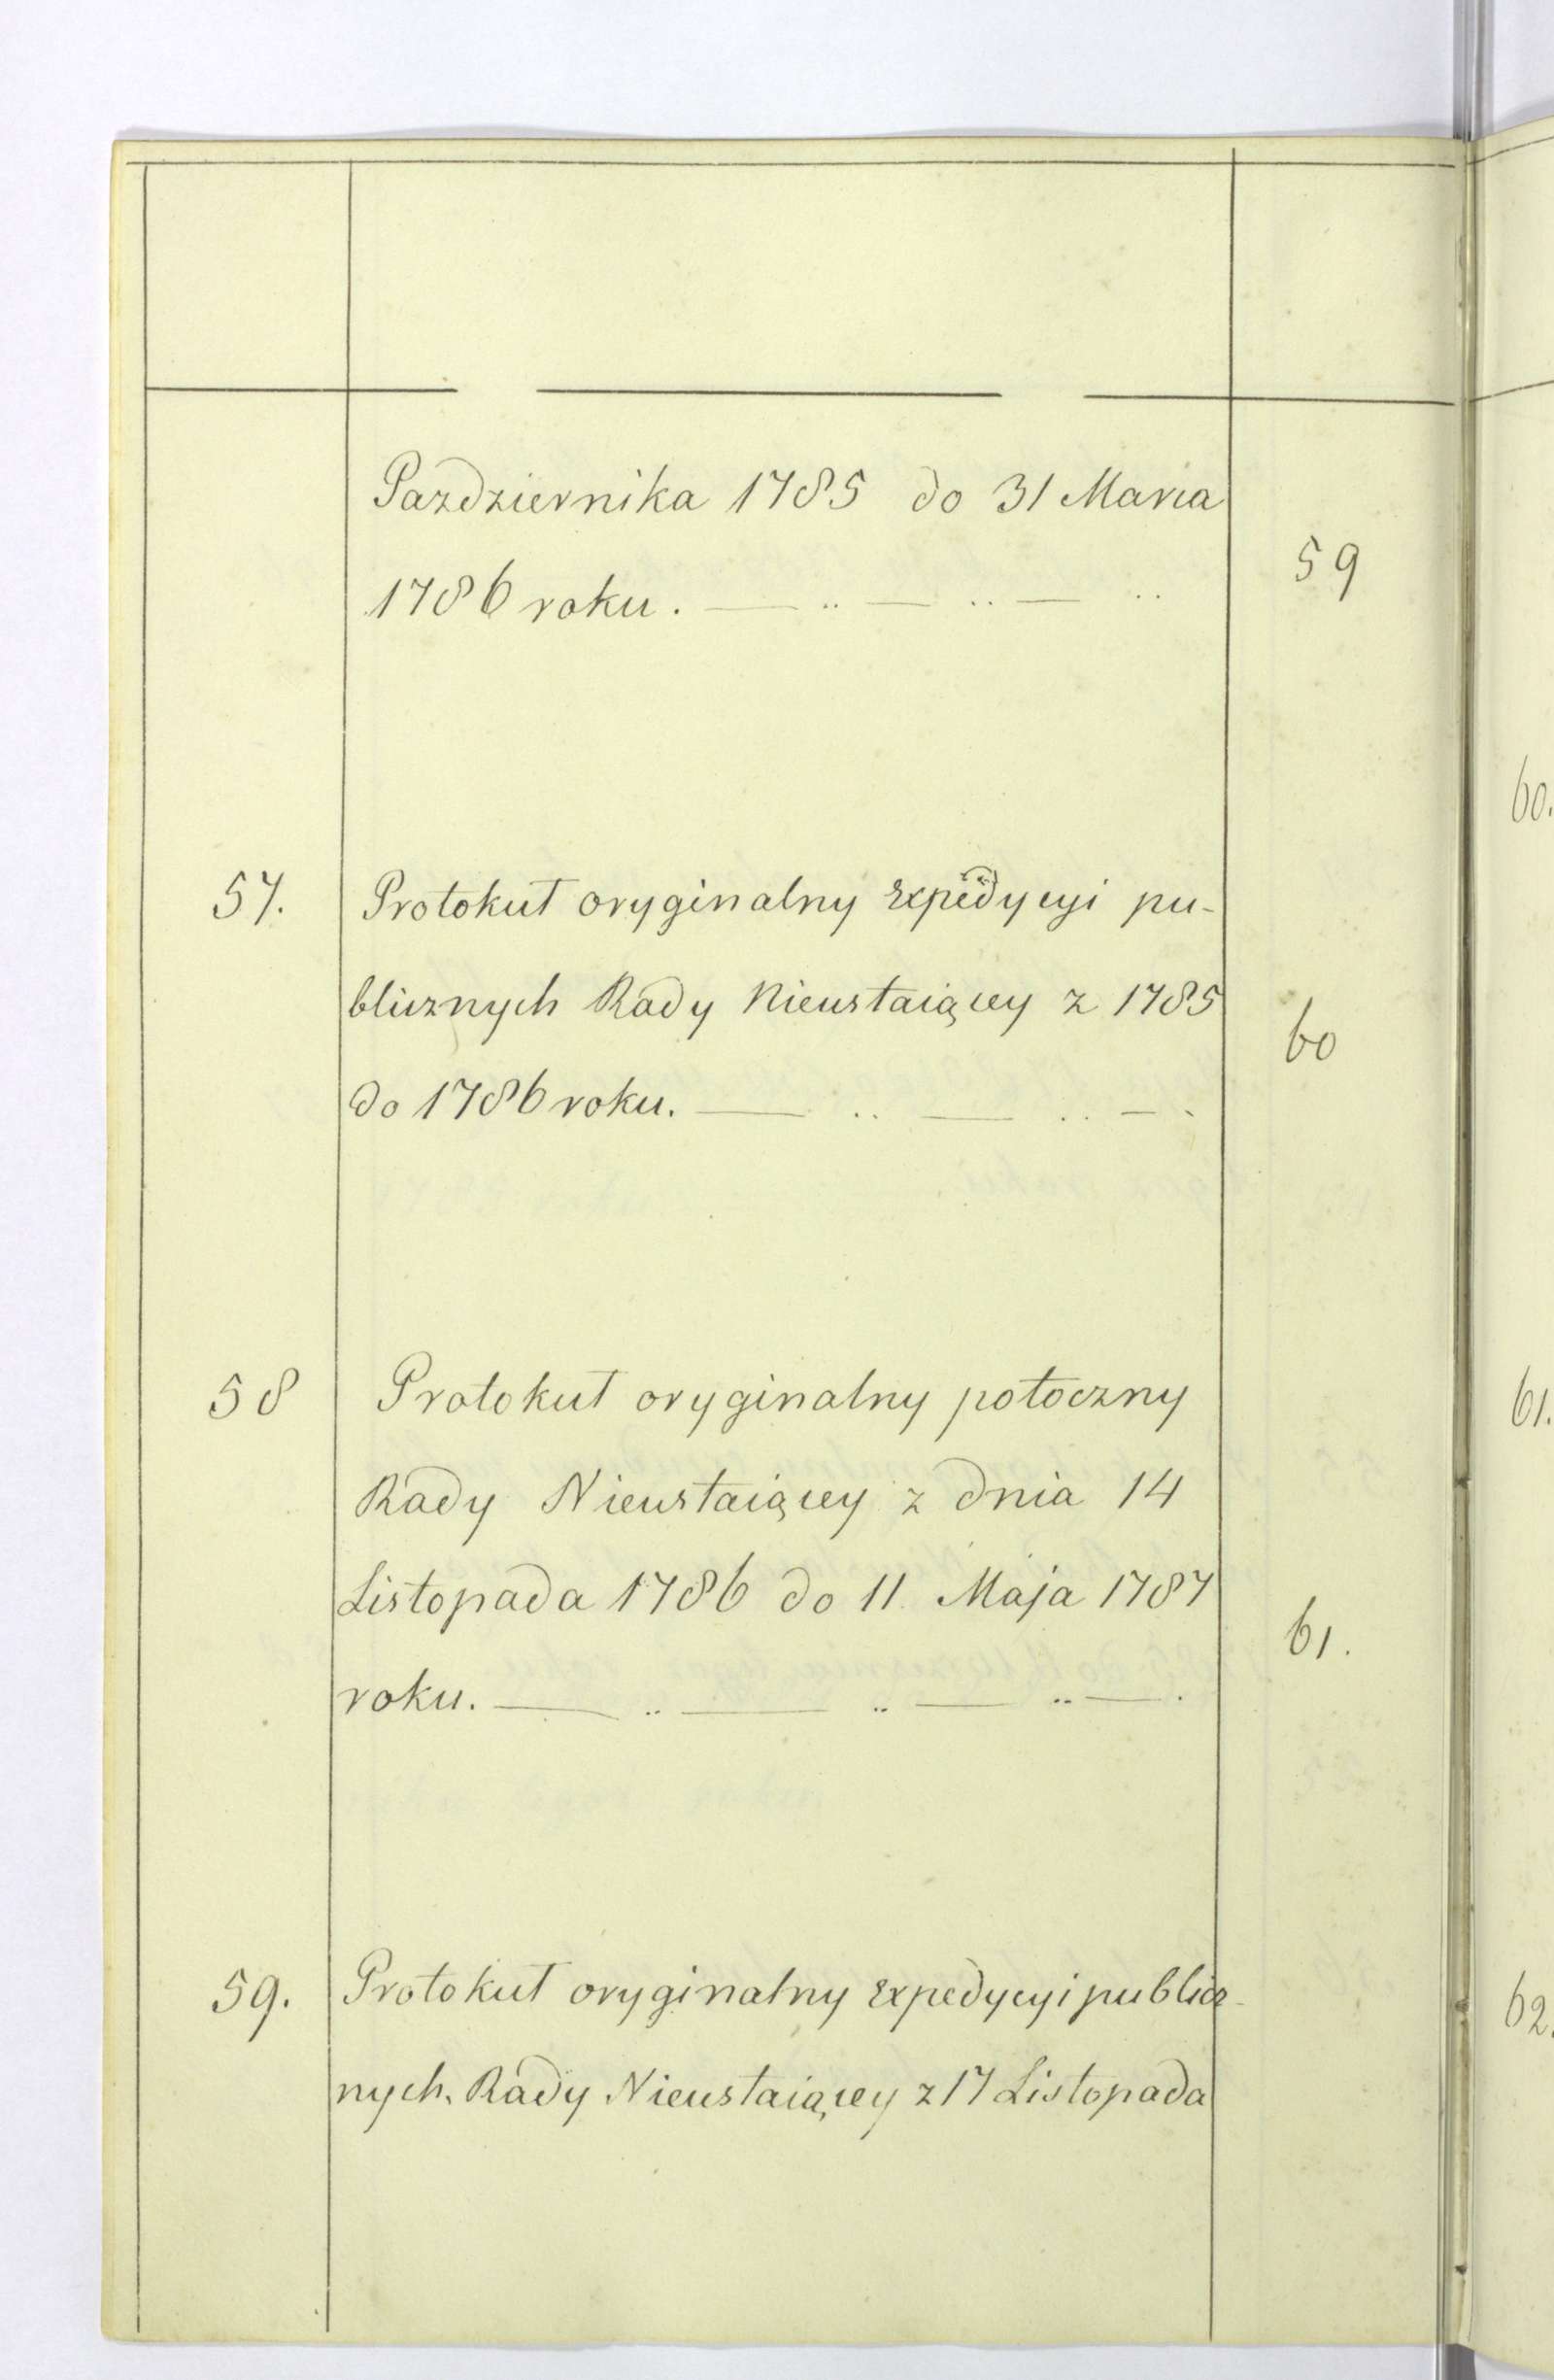 Pazdziernika 1785 do 31 Marca
1786 roku. — .. — .. — ..
59
57. Protokuł oryginalny Expedycyi pu-
blicznych Rady Nieustaiącey z 1785
60
do 1786 roku. — .. — .. — .
58 Protokuł oryginalny potoczny
Rady Nieustaiącey z dnia 14
Listopada 1786 do 11 Maja 1787
61.
roku. — .. — .. — .. — .
59. Protokuł oryginalny Expedycyi publicz-
nych Rady Nieustaiącey z 17 Listopada
60.
61.
62.